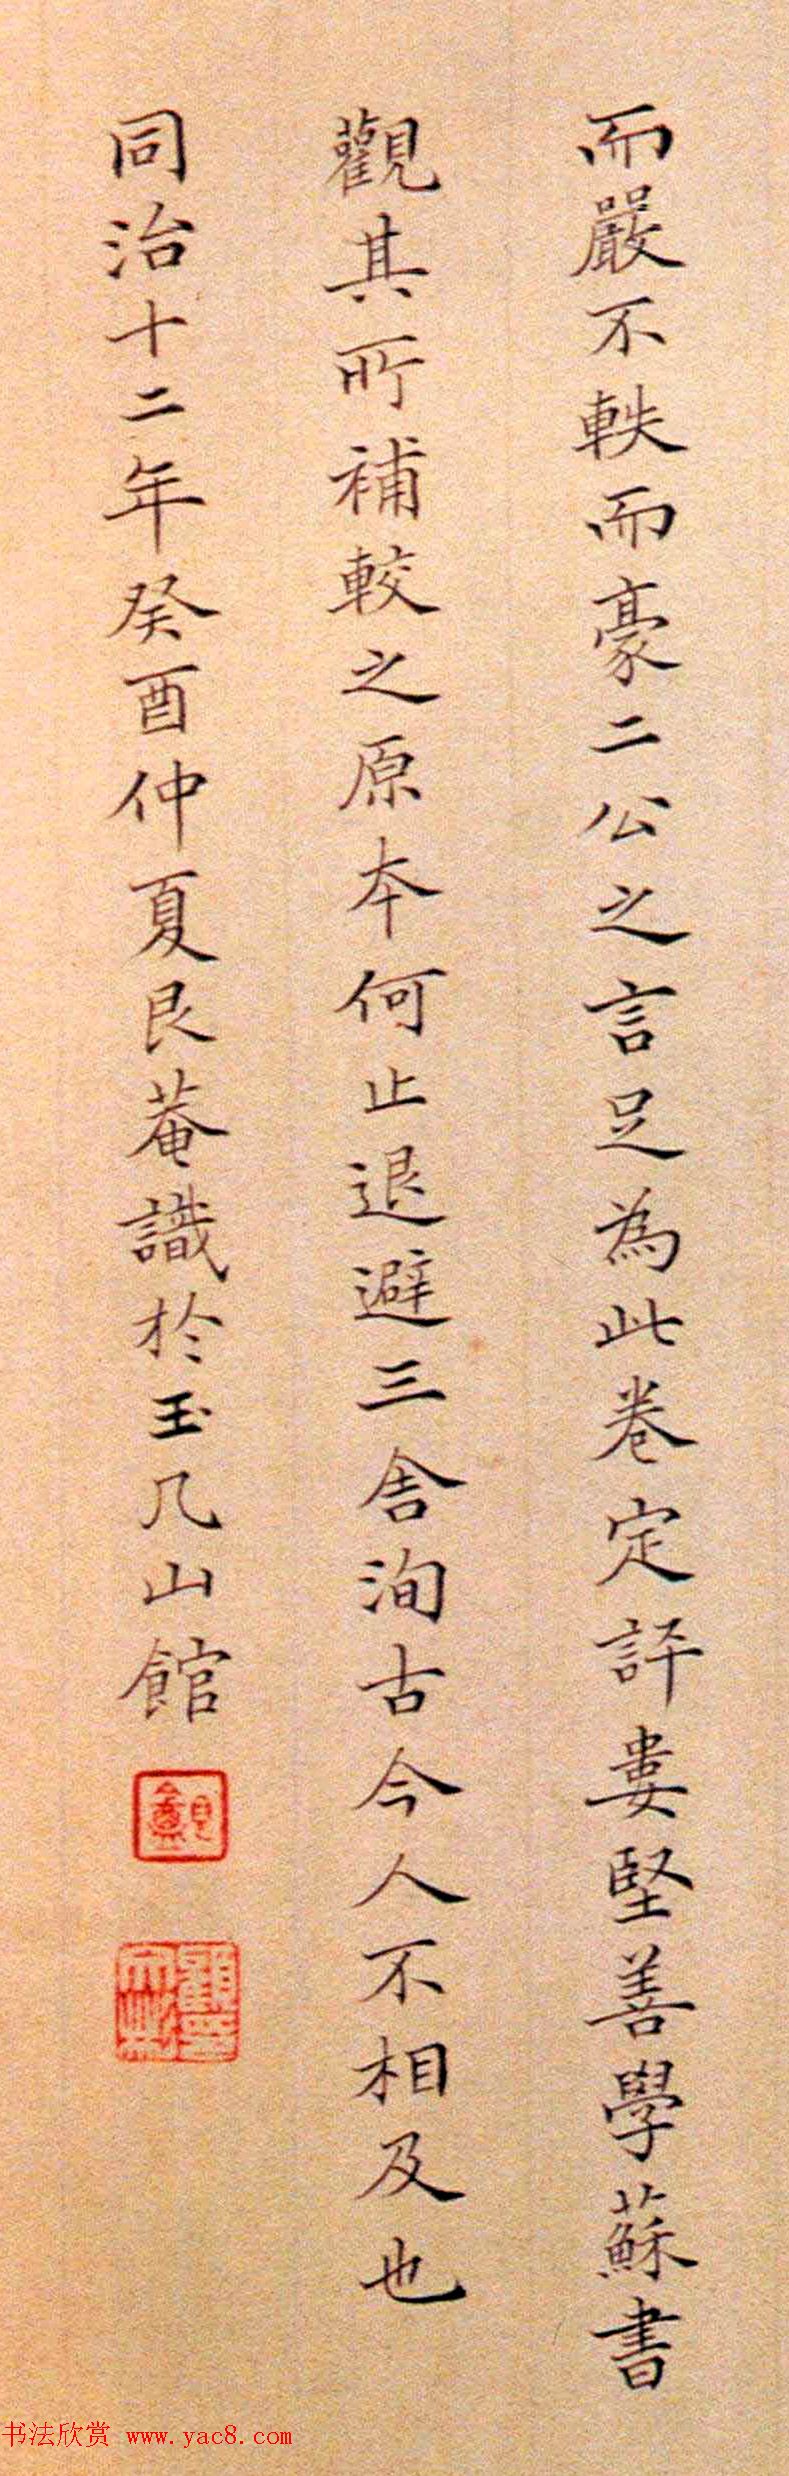 而嚴不軼而豪二公之言足為此卷定評婁堅善學蘇書
觀其所補較之原本何止退避三舍洵古今人不相及也
同治十二年癸酉仲夏艮菴識於玉几山館
书法欣赏 www.yac8.com